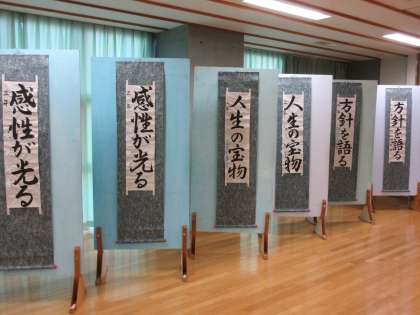 感性が光る
感性が光る
人生の宝物
人生の宝物
方針を語る
方針を語る